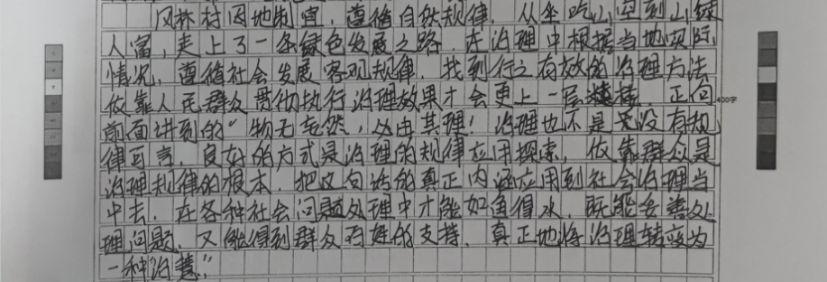 风林村因地制宜，遵循自然规律，从坐吃山空到山绿
人富，走上了一条绿色发展之路，在治理中根据当地实际
情况，遵循社会发展客观规律，找到行之有效的治理方法
依靠人民群众贯彻执行治理效果才会更上一层楼。正向 400字
前面讲到的"物无妄然，必由其理！治理也不是无没有规
律可言，良好的方式是治理的规律应用探索，依靠群众是
治理规律的根本，把这句话的真正内涵应用到社会治理当
中去，在各种社会问题处理中才能如鱼得水，既能妥善处
理问题，又能得到群众百姓的支持，真正地将治理转变为
一种"治慧"